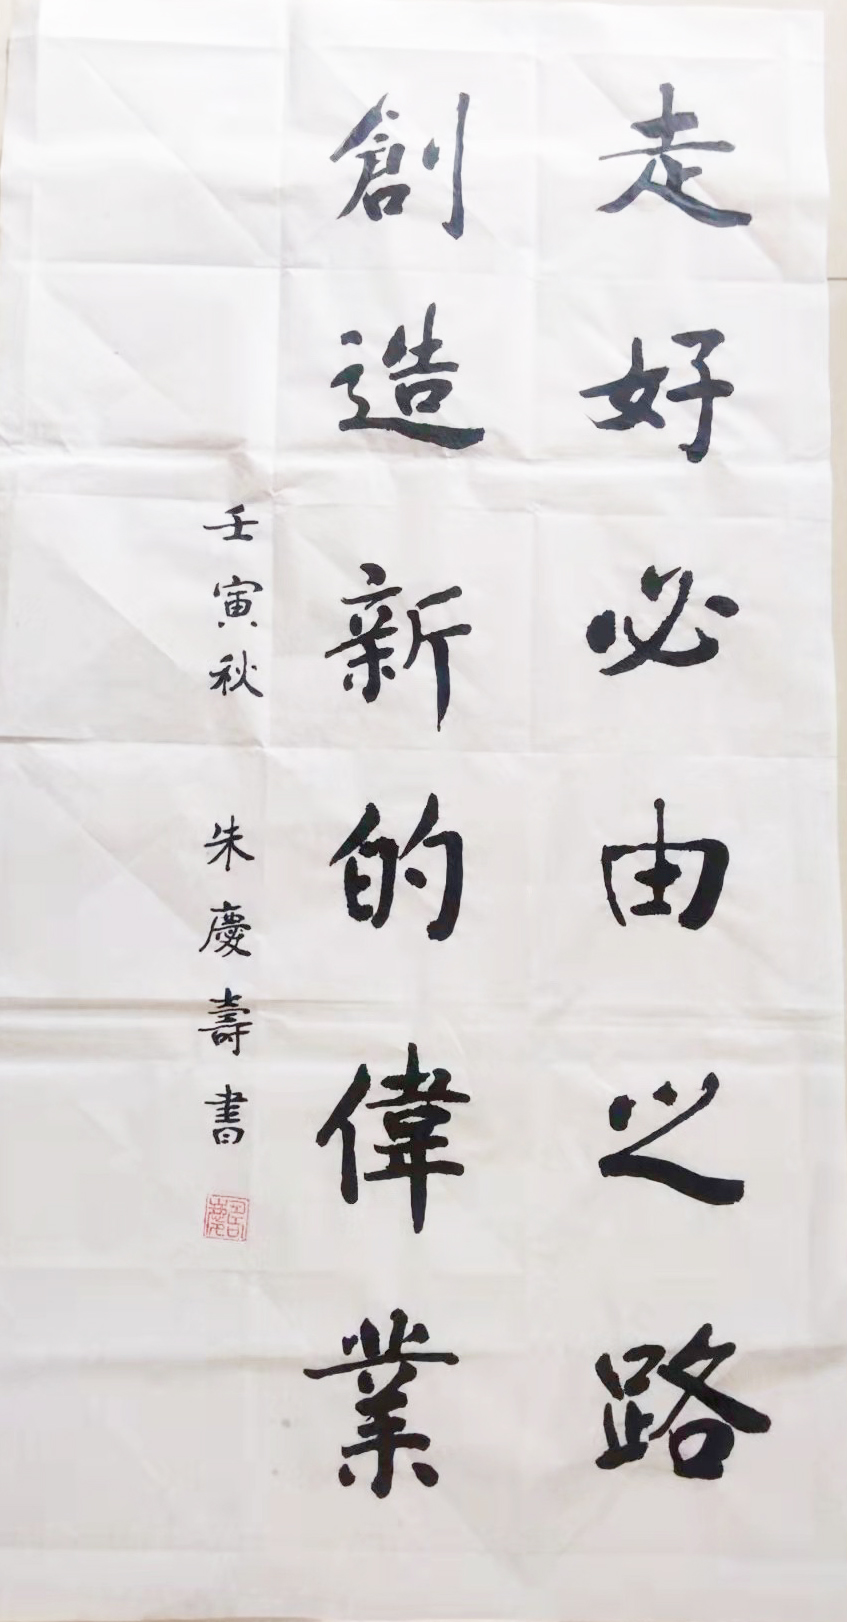 走好必由之路
創造新的偉業
壬寅秋 朱慶壽書